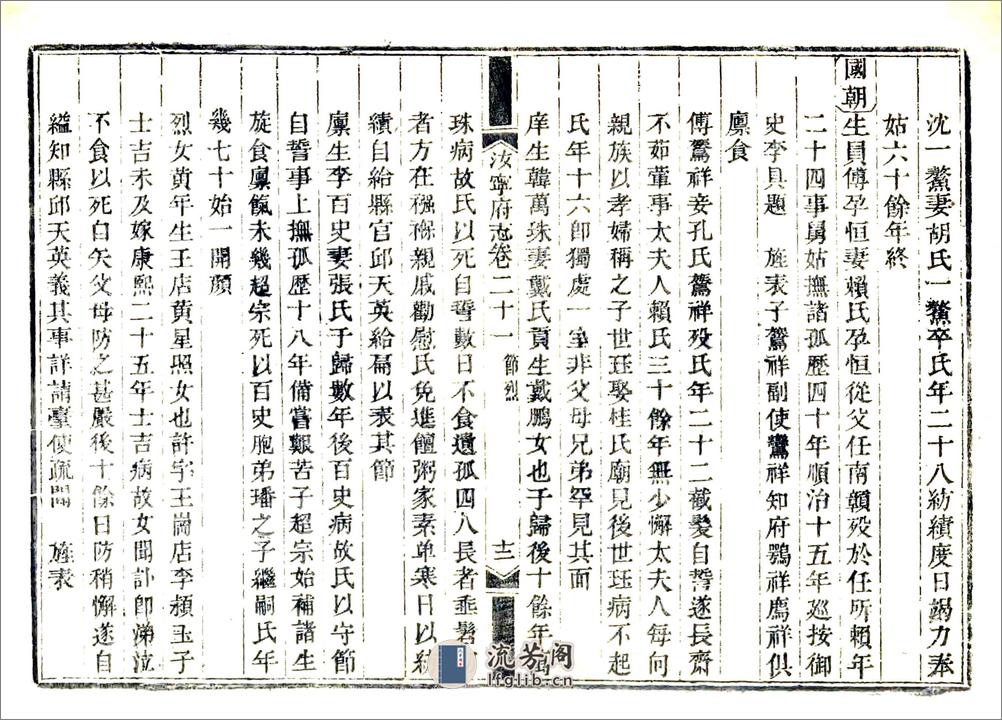 沈一鰲妻胡氏一鰲卒氏年二十八紡績度日竭力奉
姑六十餘年終
國朝
生員傅孕恒妻賴氏孕恒從父任南贛歿於任所賴年
二十四事舅姑撫諸孤歷四十年順治十五年巡按御
史李具題 旌表子鴛祥副使鸞祥知府鶚祥鷹祥俱
廩食
傅鴛祥妾孔氏鴛祥歿氏年二十二截髮自誓遂長齋
不茹葷事太夫人賴氏三十餘年無少懈太夫人每向
親族以孝婦稱之子世珏娶桂氏廟見後世珏病不起
氏年十六卽獨處一室非父母兄弟罕見其面
庠生韓萬珠妻戴氏貢生戴鵬女也于歸後十餘年萬
汝寧府志卷二十一 節烈 十二
珠病故氏以死自誓數日不食遺孤四人長者垂髫
者方在襁褓親戚勸慰氏免進饘粥家素单寒日以紡
績自給縣官邱天英給扁以表其節
廩生李百史妻張氏于歸數年後百史病故氏以守節
自誓事上撫孤歷十八年備嘗艱苦子超宗始補諸生
旋食廩餼未幾超宗死以百史胞弟璠之子繼嗣氏年
幾七十始一開顏
烈女黃年生王店黃星照女也許字王崗店李潁玉子
士吉未及嫁康熙二十五年士吉病故女聞訃卽涕泣
不食以死自矢父母防之甚嚴後十餘日防稍懈遂自
縊知縣邱天英義其事詳請臺使疏聞 旌表
流芳阁
lfglib.cn